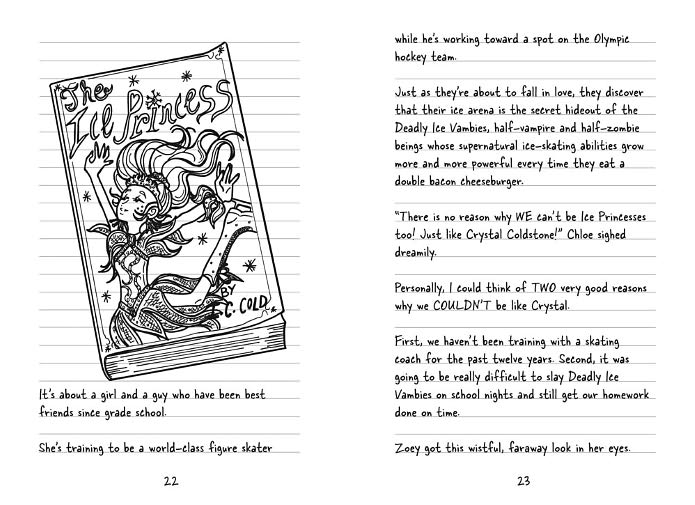 The
Ice Princess
BY
I. C. COLD
It's about a girl and a guy who have been best
friends since grade school.
She's training to be a world-class figure skater
22
while he's working toward a spot on the Olympic
hockey team.
Just as they're about to fall in love, they discover
that their ice arena is the secret hideout of the
Deadly Ice Vambies, half-vampire and half-zombie
beings whose supernatural ice-skating abilities grow
more and more powerful every time they eat a
double bacon cheeseburger.
"There is no reason why WE can't be Ice Princesses
too! Just like Crystal Coldstone!" Chloe sighed
dreamily.
Personally, I could think of TWO very good reasons
why we COULDN'T be like Crystal.
First, we haven't been training with a skating
coach for the past twelve years. Second, it was
going to be really difficult to slay Deadly Ice
Vambies on school nights and still get our homework
done on time.
Zoey got this wistful, faraway look in her eyes.
23